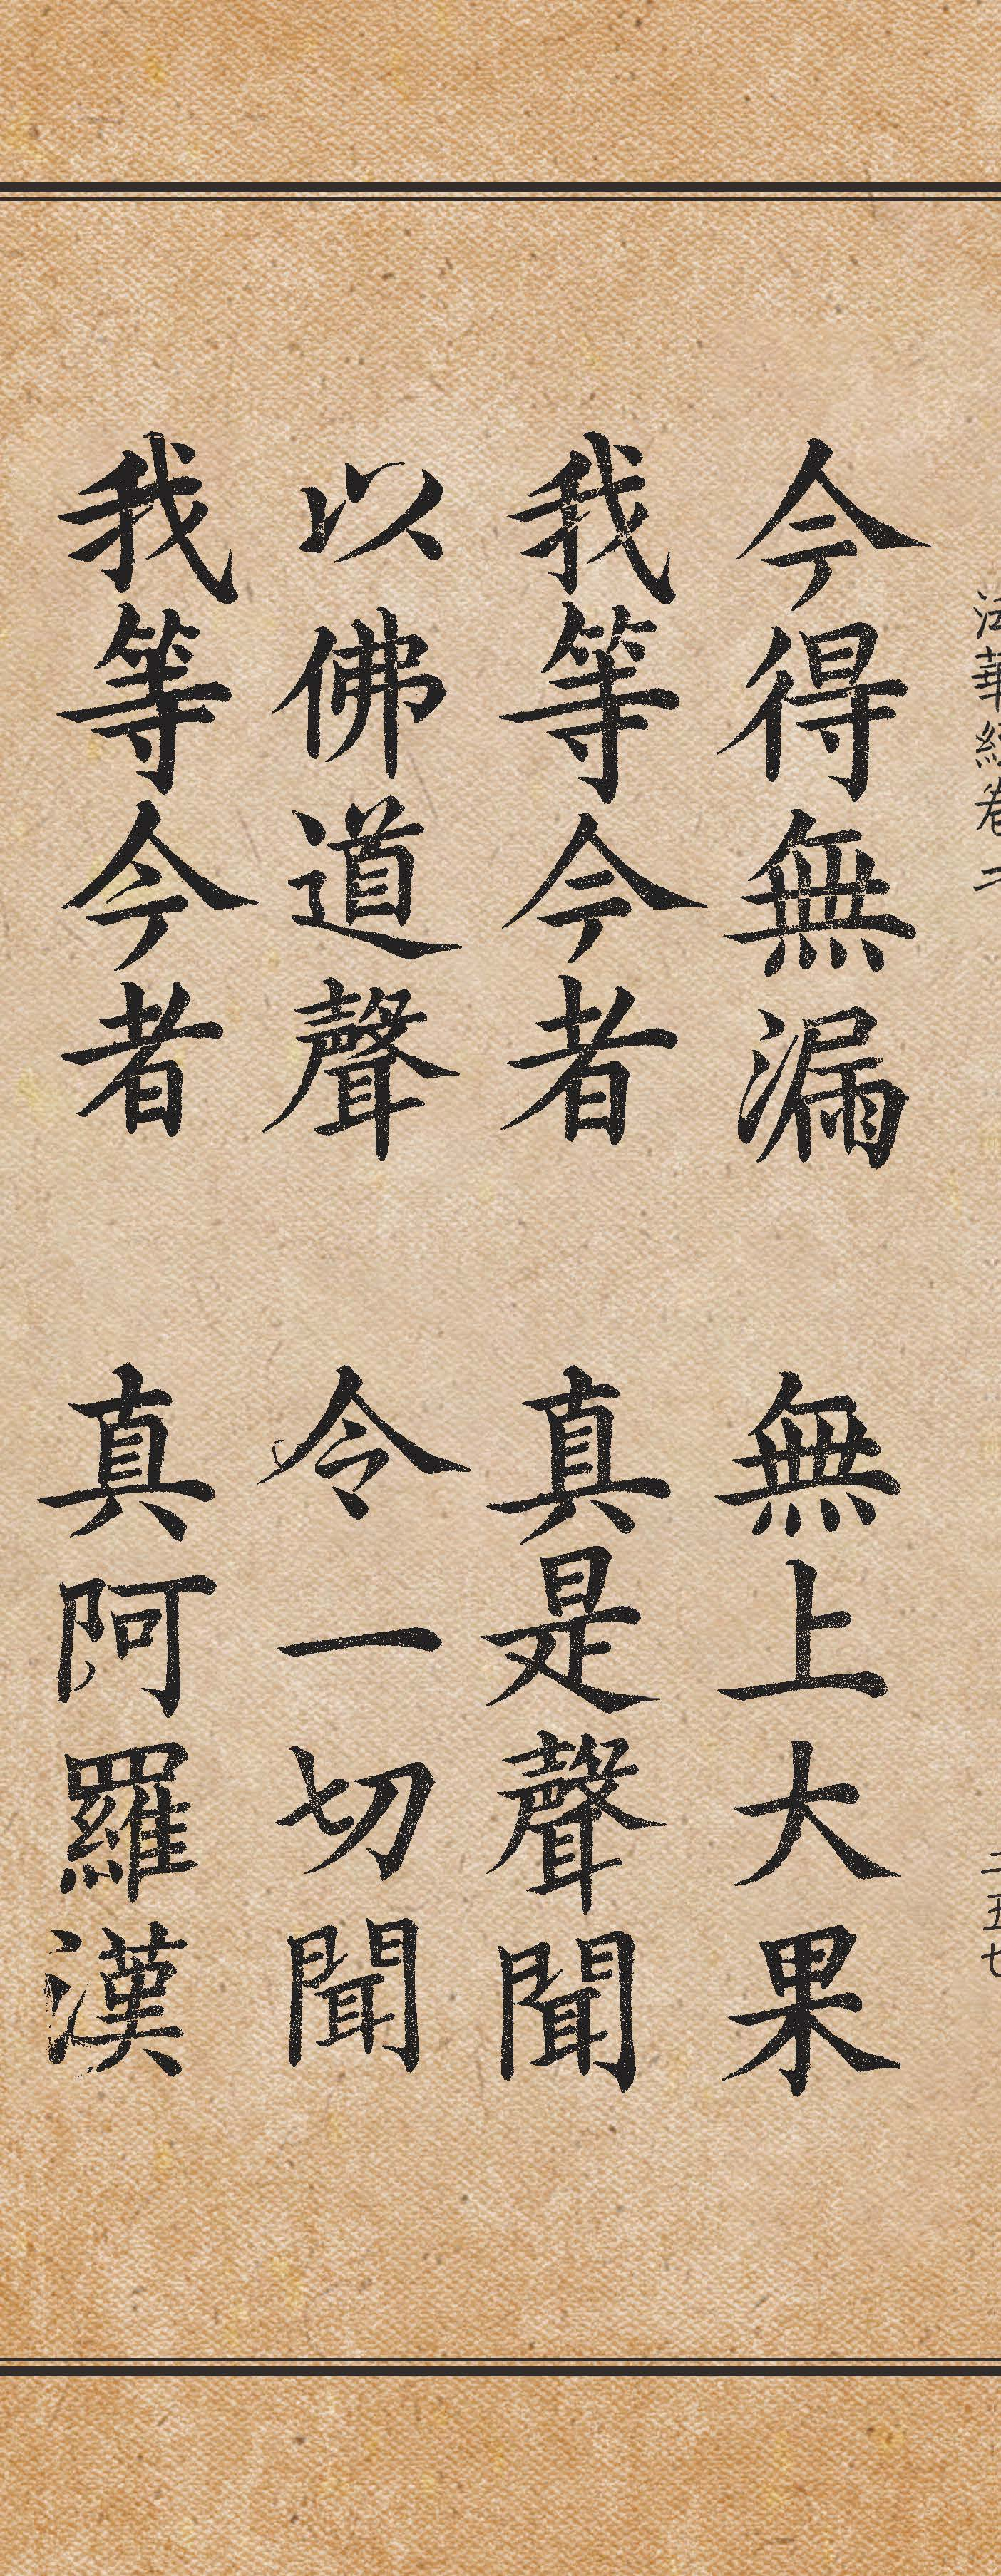 法華經卷二
二五七
今得無漏 無上大果
我等今者 真是聲聞
以佛道聲 令一切聞
我等今者 真阿羅漢